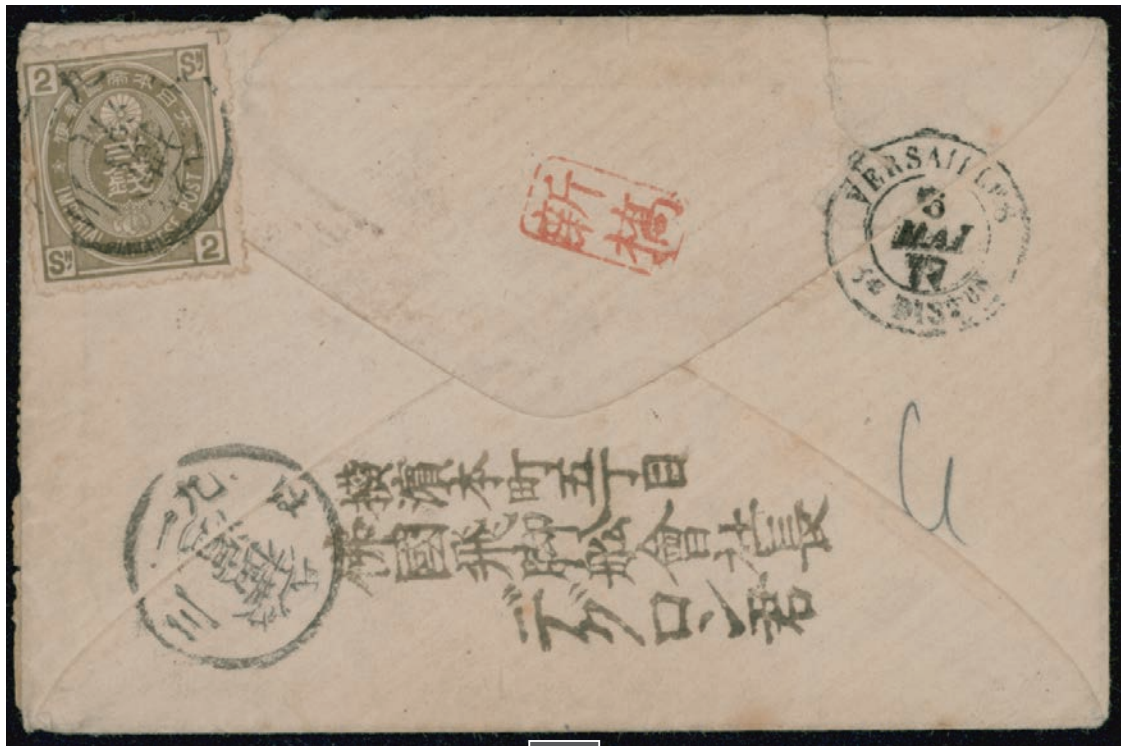 2 SN
大日本帝國郵便
二銭
IMPERIAL JAPANESE POST
SN 2
新橋
VERSAILLES
MAI
77
横濱本町五丁目
佛國飛脚舩會社長
デグロン君
横濱